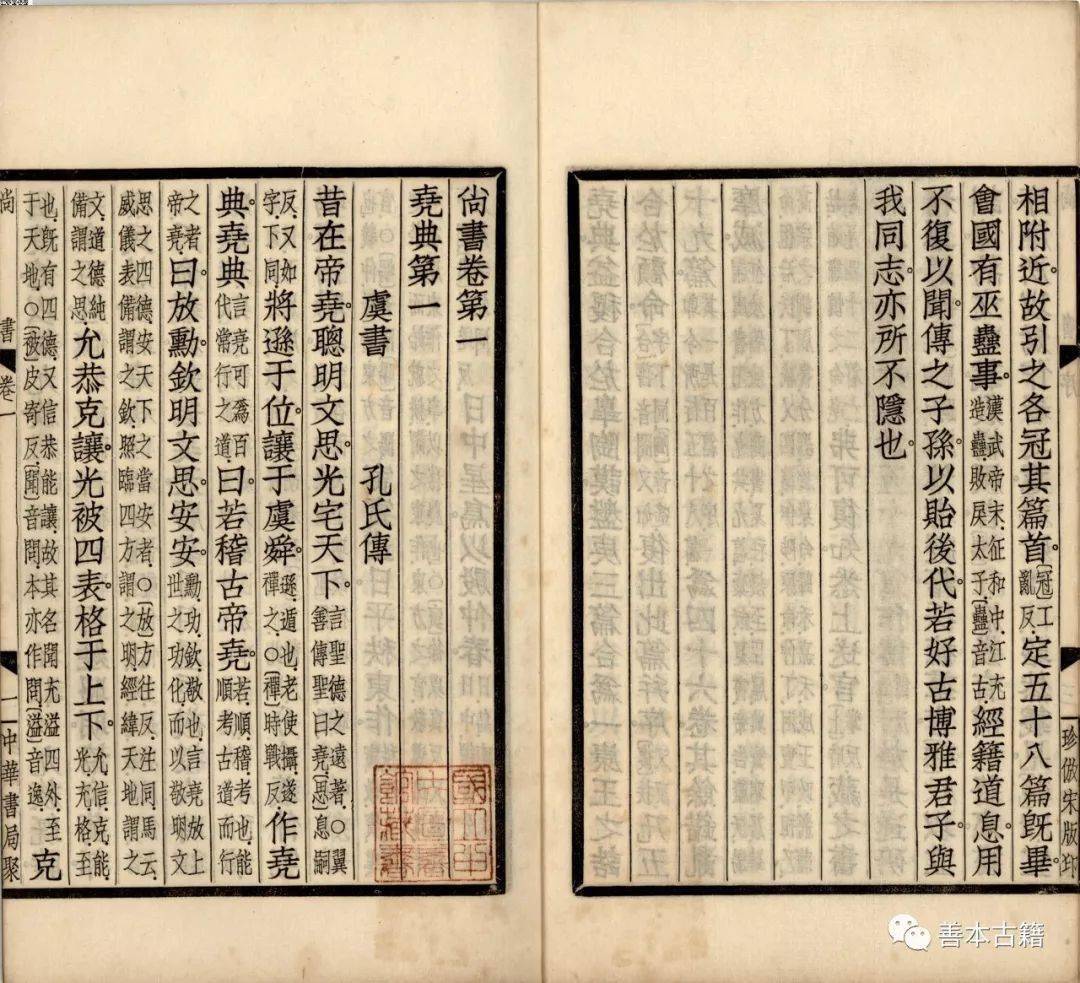 相附近故引之各冠其篇首[冠]工亂反定五十八篇旣畢
會國有巫蠱事漢武帝末征和中江充造蠱敗戾太子[蠱]音古經籍道息用
不復以聞傳之子孫以貽後代若好古博雅君子與
我同志亦所不隱也
珍倣宋版印
尙書卷第一
堯典第一
虞書 孔氏傳
昔在帝堯聰明文思光宅天下言聖德之遠著○翼善傳聖曰堯[思]息嗣
反又如字下同將遜于位讓于虞舜遜遁也老使攝遂禪之○[禪]時戰反作堯
典堯典言堯可爲百代常行之道曰若稽古帝堯若順稽考也能順考古道而行
之者帝堯曰放勳欽明文思安安勳功欽敬也言堯放上世之功化而以敬明文
思之四德安天下之當安者○[放]方往反注同馬云威儀表備謂之欽照臨四方謂之明經緯天地謂之
文道德純備謂之思允恭克讓光被四表格于上下允信克能光充格至
也旣有四德又信恭能讓故其名聞充溢四外至于天地○[被]皮寄反[聞]音問本亦作問[溢]音逸克
尙書 卷一 一 中華書局聚
善本古籍